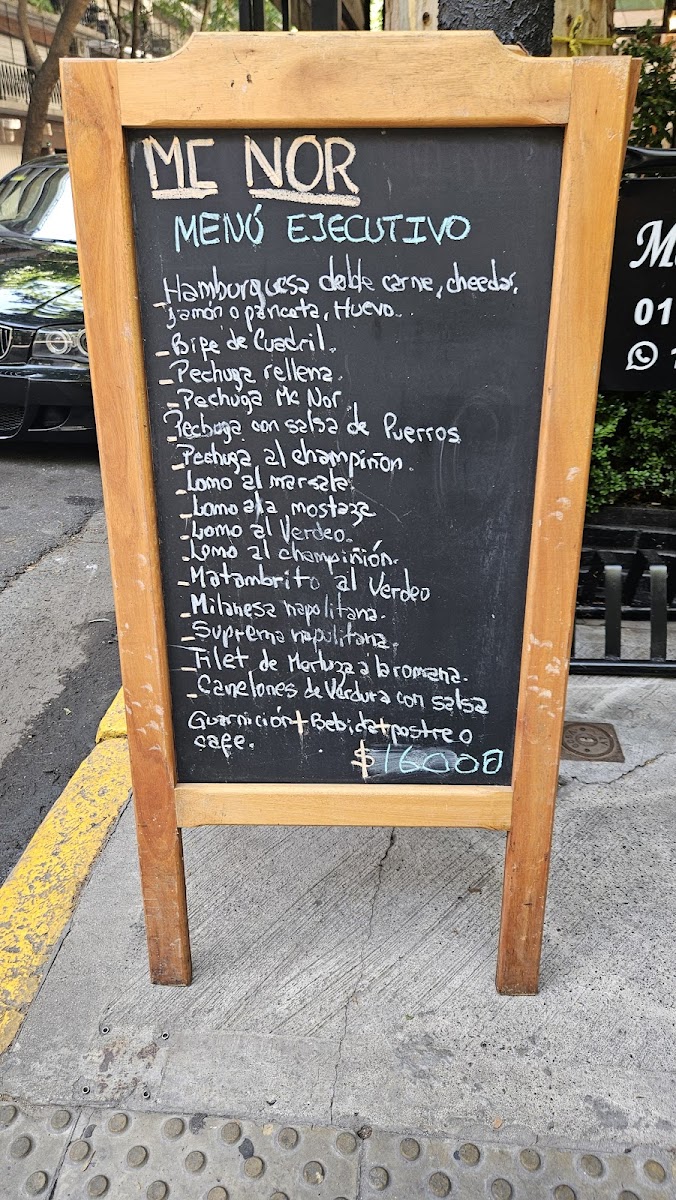 MC NOR
MENÚ EJECUTIVO
_Hamburguesa doble carne, cheedar,
jamón o panceta, Huevo.
_Bife de Cuadril.
_Pechuga rellena.
_Pechuga Mc Nor
_Pechuga con salsa de Puerros
_Pechuga al champiñon.
_Lomo al marsala
_Lomo a la mostaza
_Lomo al Verdeo.
_Lomo al champiñión.
_Matambrito al Verdeo
_Milanesa napolitana.
_Suprema napolitana.
_Filet de Merluza a la romana.
_Canelones de Verdura con salsa
Guarnición + Bebida + postre o
cafe.
$16000
M
01